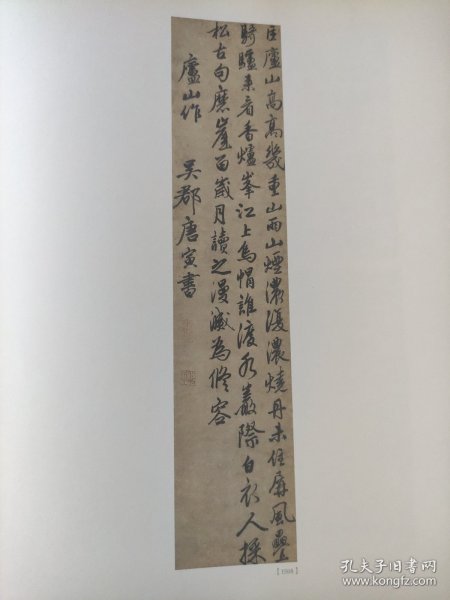 匡廬山高高幾重山雨山煙濃復濃燒丹未住屏風疊
騎驢來看香爐峯江上烏帽誰渡水巖際白衣人採
松古句磨崖留歲月讀之漫滅為修容
廬山作 吳郡唐寅書
孔夫子旧书网
www.kongfz.com